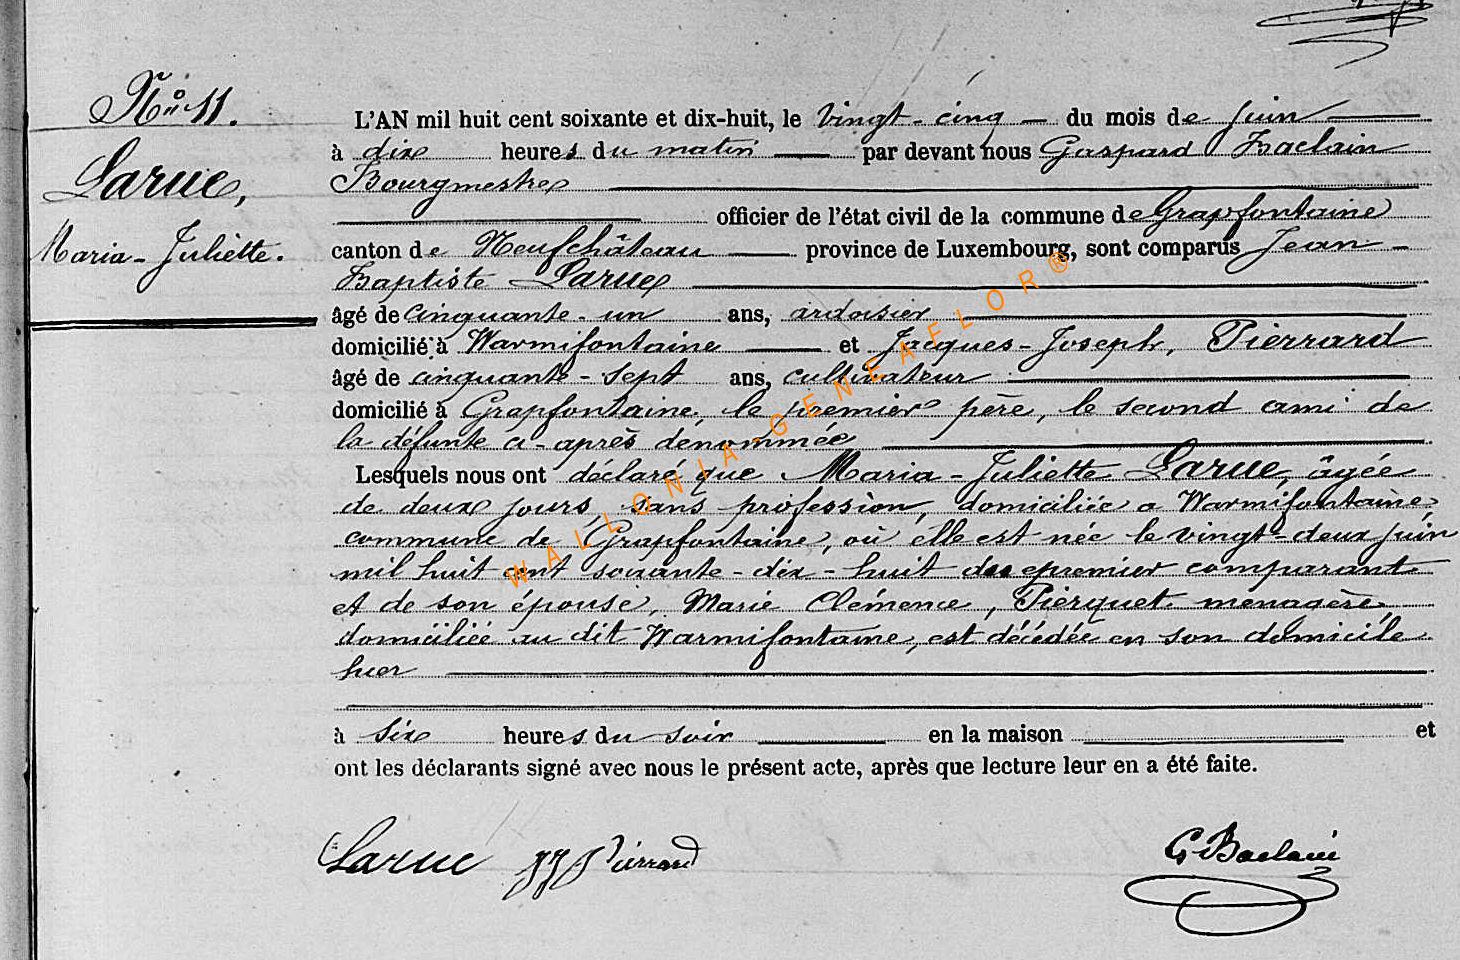 N° 11.
Larue,
Maria-Juliette.
L'AN mil huit cent soixante et dix-huit, le vingt-cinq du mois de juin
à dix heures du matin par devant nous Gaspard Baclain
Bourgmestre
officier de l'état civil de la commune de Grapfontaine
canton de Neufchâteau province de Luxembourg, sont comparus Jean
Baptiste Larue
âgé de cinquante-un ans, ardoisier
domicilié à Warmifontaine et Jacques-Joseph, Pierrard
âgé de cinquante-sept ans, cultivateur
domicilié à Grapfontaine, le premier père, le second ami de
la défunte ci-après dénommée
Lesquels nous ont déclaré que Maria-Juliette Larue, âgée
de deux jours, sans profession, domiciliée a Warmifontaine,
commune de Grapfontaine, où elle est née le vingt-deux juin
mil huit cent soixante-dix-huit du premier comparant
et de son épouse, Marie Clémence, Pierquet ménagère,
domiciliée au dit Warmifontaine, est décédée en son domicile
hier
à six heures du soir en la maison et
ont les déclarants signé avec nous le présent acte, après que lecture leur en a été faite.
Larue JJPierrard G Baclain
WALLONIA-GENEAFLOR®